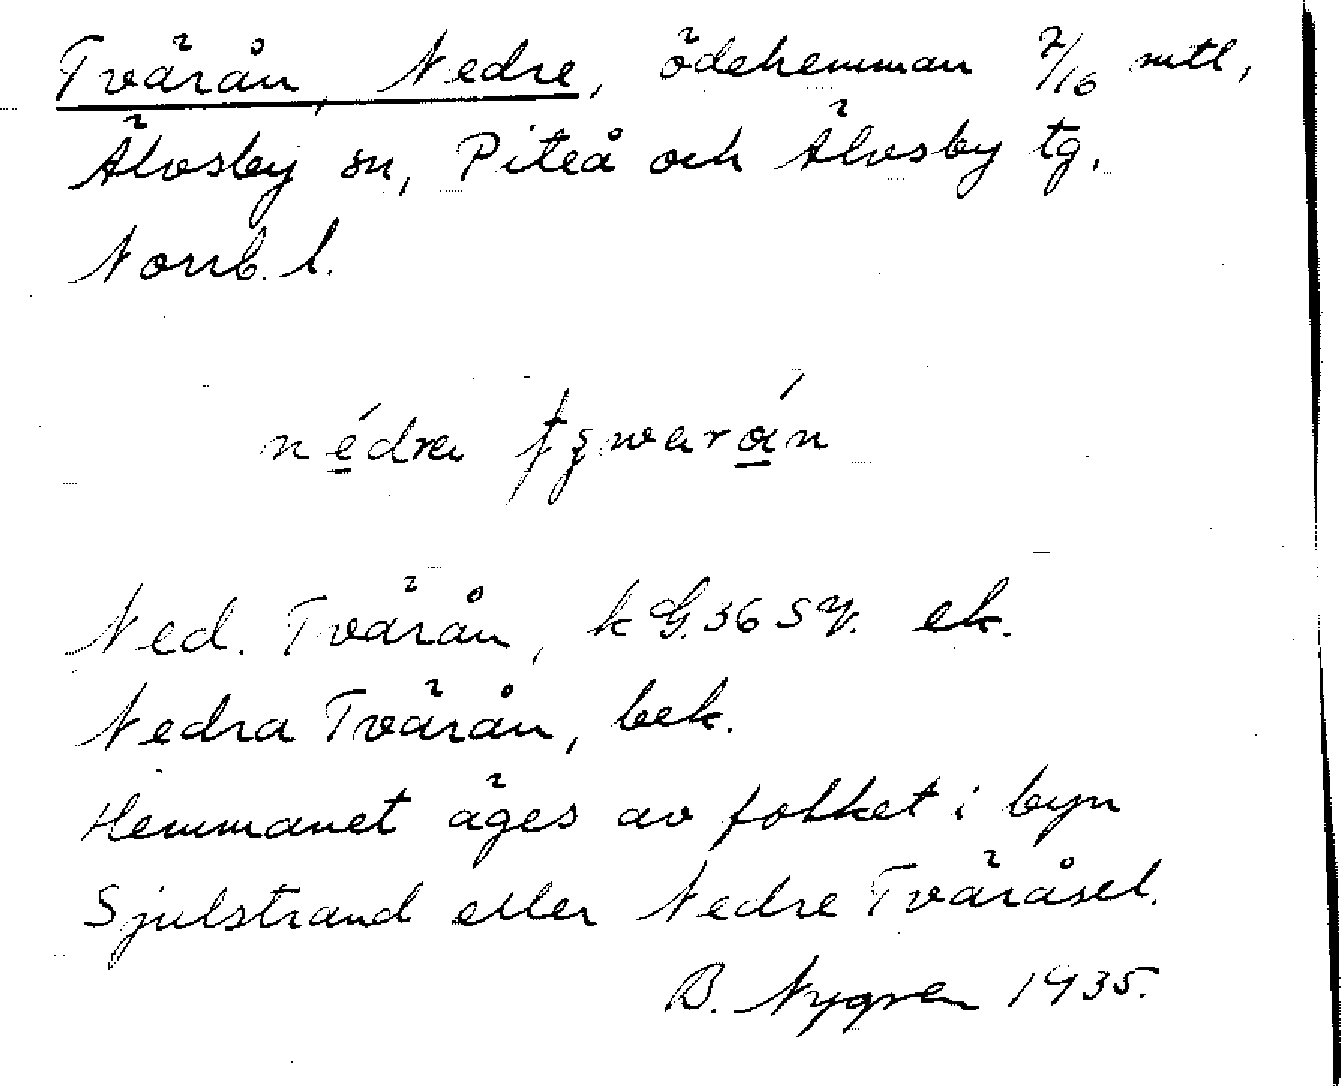 Tvärån, Nedre, ödehemman 7/16 mtl,
Älvsby sn, Piteå och Älvsby tg.
Norrb. l.
nédra
Ned. Tvärån, k G. 36 S Y. ek.
Nedra Tvärån, bek.
Hemmanet äges av folket i byn
Sjulstrand eller Nedre Tväråsel.
B. Nygren 1935.